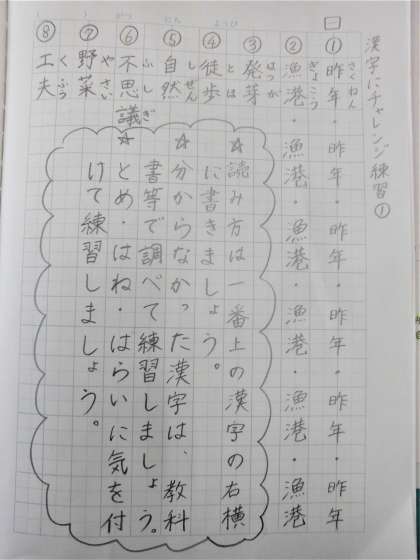 漢字にチャレンジ練習①
一
①昨年・昨年・昨年・昨年・昨年・昨年
さくねん
②漁港・漁港・漁港・漁港・漁港・漁港
ぎょこう
③発芽
はつが
④徒歩
とほ
⑤自然
しぜん
⑥不思議
ふしぎ
⑦野菜
やさい
⑧工夫
くふう
☆読み方は一番上の漢字の右横
に書きましょう。
☆分からなかった漢字は、教科
書等で調べて練習しましょう。
☆とめ・はね・はらいに気を付
けて練習しましょう。